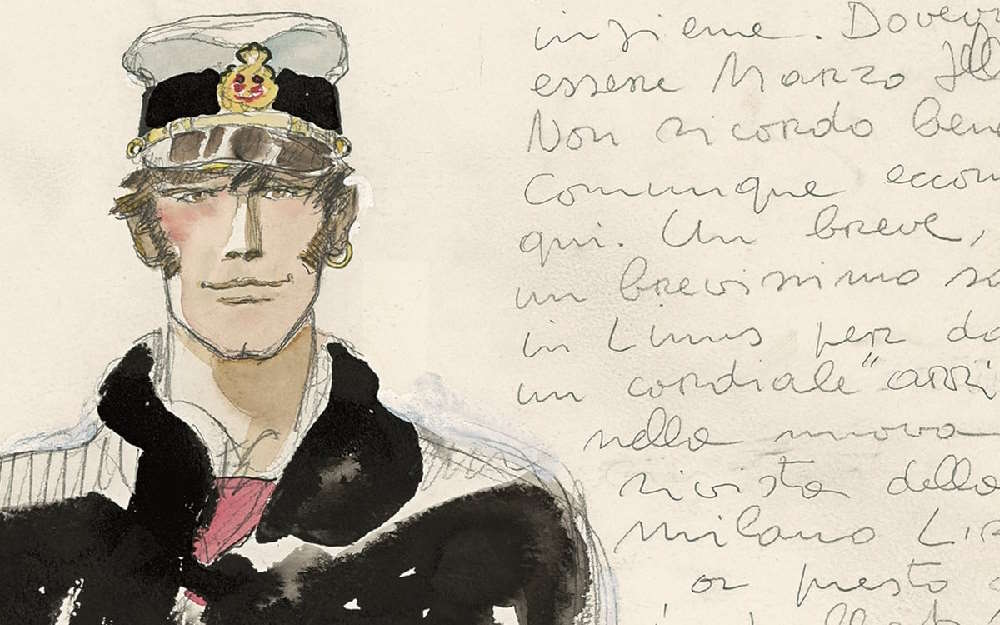 insieme. Dovev
essere Marzo
Non ricordo ben
Comunque eccom
qui. Un breve,
un brevissimo sa
in Linus per da
un cordiale "arri
nella nuova
rivista della
Milano Li
a presto